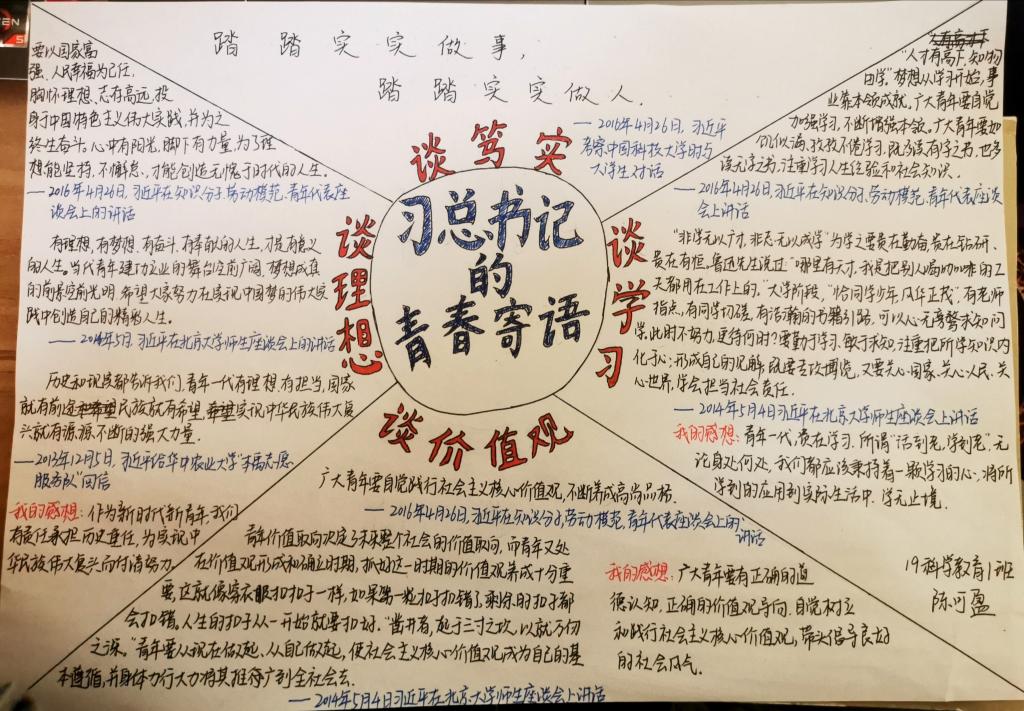 踏踏实实做事，
踏踏实实做人．
——2016年4月26日，习近平
考察中国科技大学时与
大学生对话
谈笃实
习总书记
的
青春寄语
谈理想
要以国家富
强、人民幸福为己任，
胸怀理想、志存高远，投
身于中国特色主义伟大实践，并为之
终生奋斗，心中有阳光，脚下有力量，为了理
想能坚持、不懈怠，才能创造无愧于时代的人生。
——2016年4月26日，习近平在知识分子、劳动模范、青年代表座
谈会上的讲话
有理想，有梦想，有奋斗，有奉献的人生，才是有意义
的人生。当代青年建功立业的舞台空前广阔，梦想成真
的前景空前光明，希望大家努力在实现中国梦的伟大实
践中创造自己的精彩人生。
——2014年5月，习近平在北京大学师生座谈会上的讲话
历史和现实都告诉我们，青年一代有理想，有担当，国家
就有前途民族就有希望，实现中华民族伟大复
兴就有源源不断的强大力量．
——2013年12月5日，习近平给华中农业大学“本禹志愿
服务队”回信
我的感想：作为新时代新青年，我们
有责任承担历史重任，为实现中
华民族伟大复兴而付清努力
谈学习
“人才有高下，知物
由学。”梦想从学习开始，事
业靠本领成就，广大青年要自觉
加强学习，不断增强本领，广大青年要如
饥似渴，孜孜不倦学习，既多读有字之书，也多
读无字之书，注重学习人生经验和社会知识．
——2016年4月26日，习近平在知识分子、劳动模范、青年代表座谈
会上讲话
“非学无以广才，非志无以成学”为学之要贵在勤奋、贵在钻研、
贵在有恒。鲁迅先生说过“哪里有天才，我是把别人喝咖啡的工
夫都用在工作上的。”大学阶段，“恰同学少年，风华正茂”，有老师
指点，有同学切磋，有浩瀚的书籍引路，可以心无旁骛求知问
学，此时不努力，更待何时？要勤于学习、敏于求知，注重把所学知识内
化于心，形成自己的见解，既要专攻博览，又要关心国家、关心人民、关
心世界，学会担当社会责任．
——2014年5月4日习近平在北京大学师生座谈会上讲话
我的感想：青年一代，贵在学习，所谓“活到老，学到老”，无
论身处何处，我们都应该秉持着一颗学习的心，将所
学到的应用到实际生活中．学无止境．
谈价值观
广大青年要自觉践行社会主义核心价值观，不断养成高尚品格．
——2016年4月26日，习近平在知识分子，劳动模范，青年代表座谈会上的讲话
青年价值取向决定了未来整个社会的价值取向，而青年又处
在价值观形成和确立时期，抓好这一时期的价值观养成十分重
要，这就像穿衣服扣扣子一样，如果第一粒扣子扣错了，剩余的扣子都
会扣错，人生的扣子从一开始就要扣好．“凿井者，起于三寸之坎，以就万仞
之深．”青年要从现在做起，从自己做起，使社会主义核心价值观成为自己的基
本遵循，并身体力行大力将其推广到全社会去．
——2014年5月4日习近平在北京大学师生座谈会上讲话
我的感想：广大青年要有正确的道
德认知，正确的价值观导向，自觉树立
和践行社会主义核心价值观，带头倡导良好
的社会风气．
19科学教育1班
陈可盈